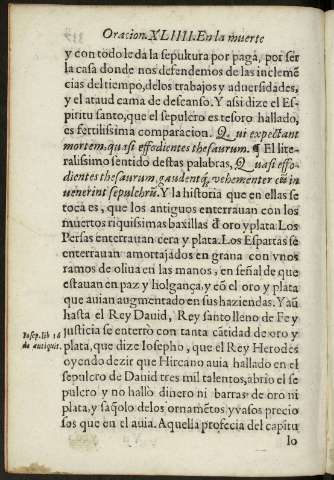 Oracion.XLIIII.En la muerte
y con todo le da la sepultura por paga, por ser
la casa donde nos defendemos de las inclemē
cias del tiempo, de los trabajos y aduersidades,
y el ataud cama de descanso. Y asi dize el Es-
piritu santo, que el sepulcro es tesoro hallado,
es fertilissima comparacion. Qui expectant
mortem, quasi effodientes thesaurum. ¶ El lite-
ralissimo sentido destas palabras, Quasi effo-
dientes thesaurum, gaudentq; vehementer cũ in
uenerint sepulchrũ. Y la historia que en ellas se
toca es, que los antiguos enterrauan con los
muertos riquissimas baxillas đ oro y plata. Los
Persas enterrauan cera y plata. Los Espartās se
enterrauan amortajados en grana con vnos
ramos de oliua en las manos, en señal de que
estauan en paz y holgança, y cō el oro y plata
que auian augmentado en sus haziendas. Y aũ
hasta el Rey Dauid, Rey santo lleno de Fe y
justicia se enterrò con tanta cātidad de oro y
plata, que dize Iosepho, que el Rey Herodes
oyendo dezir que Hircano auia hallado en el
sepulcro de Dauid tres mil talentos, abrio el se
pulcro y no hallò dinero ni barras de oro ni
plata, y saq̃olo de los ornamētos y vasos precio
sos que en el auia. Aquella profecia del capitu
lo
Iosep. lib 16
de antiquit.